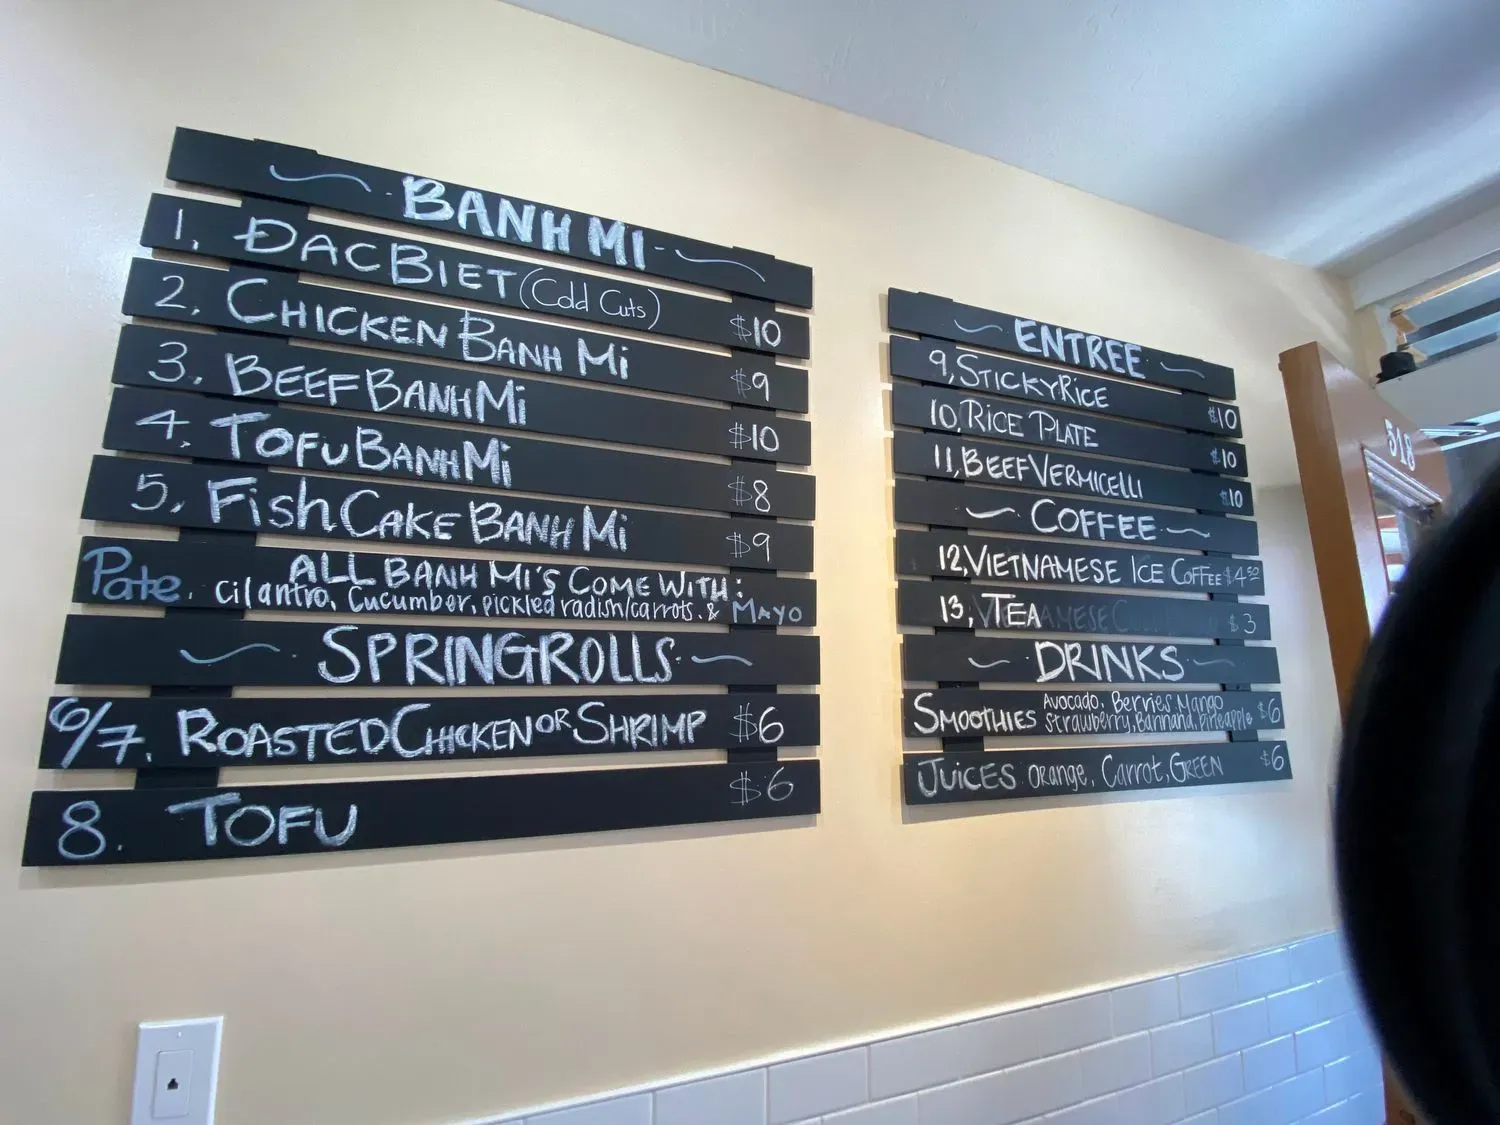 BANH MI
1. ĐAC BIET (Cold Cuts) $10
2. CHICKEN BANH Mi $9
3. BEEF BANH Mi $10
4. TOFU BANH Mi $8
5. FiSh CAKE BANH Mi $9
ALL BANH MI'S COME WITH:
Pate. cilantro, Cucumber, pickled radish/carrots. & MAYO
SPRINGROLLS
6/7. ROASTED CHICKEN OR SHRIMP $6
8. TOFU $6
ENTREE
9, STICKY RICE $10
10, RICE PLATE $10
11, BEEF VERMICELLI $10
COFFEE
12, VIETNAMESE ICE COFFEE $4.50
13, TEA $3
DRINKS
SMOOTHIES Avocado, Berries, Mango
Strawberry, Bannana, Pineapple $6
JUICES ORange, Carrot, GREEN $6
518